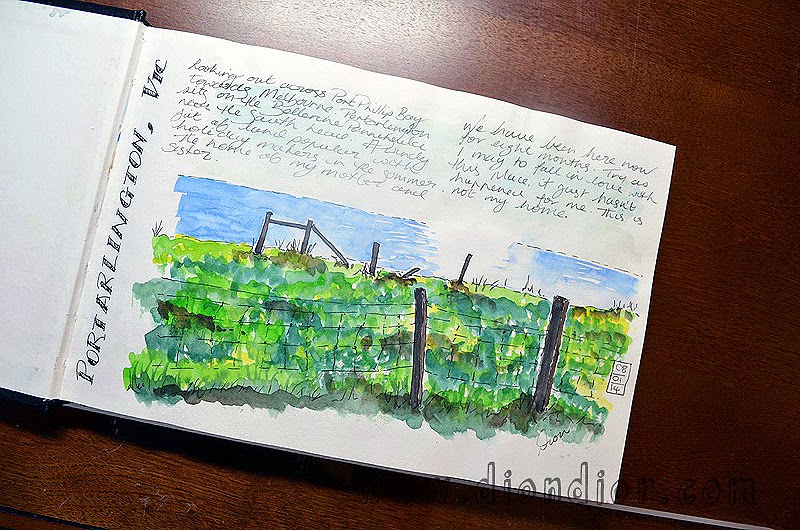 PORTARLINGTON, VIC
Looking out across Port Phillip Bay
towards Melbourne Portarlington
sits on the Bellarine Peninsula
near the South Head. A lovely
out of land popular with
holiday makers in the summer.
The home of my mother and
sister.
We have been here now
for eight months. Try as
I may to fall in love with
this place, it just hasn't
happened for me. This is
not my home.
08
01
14
www.djondior.com